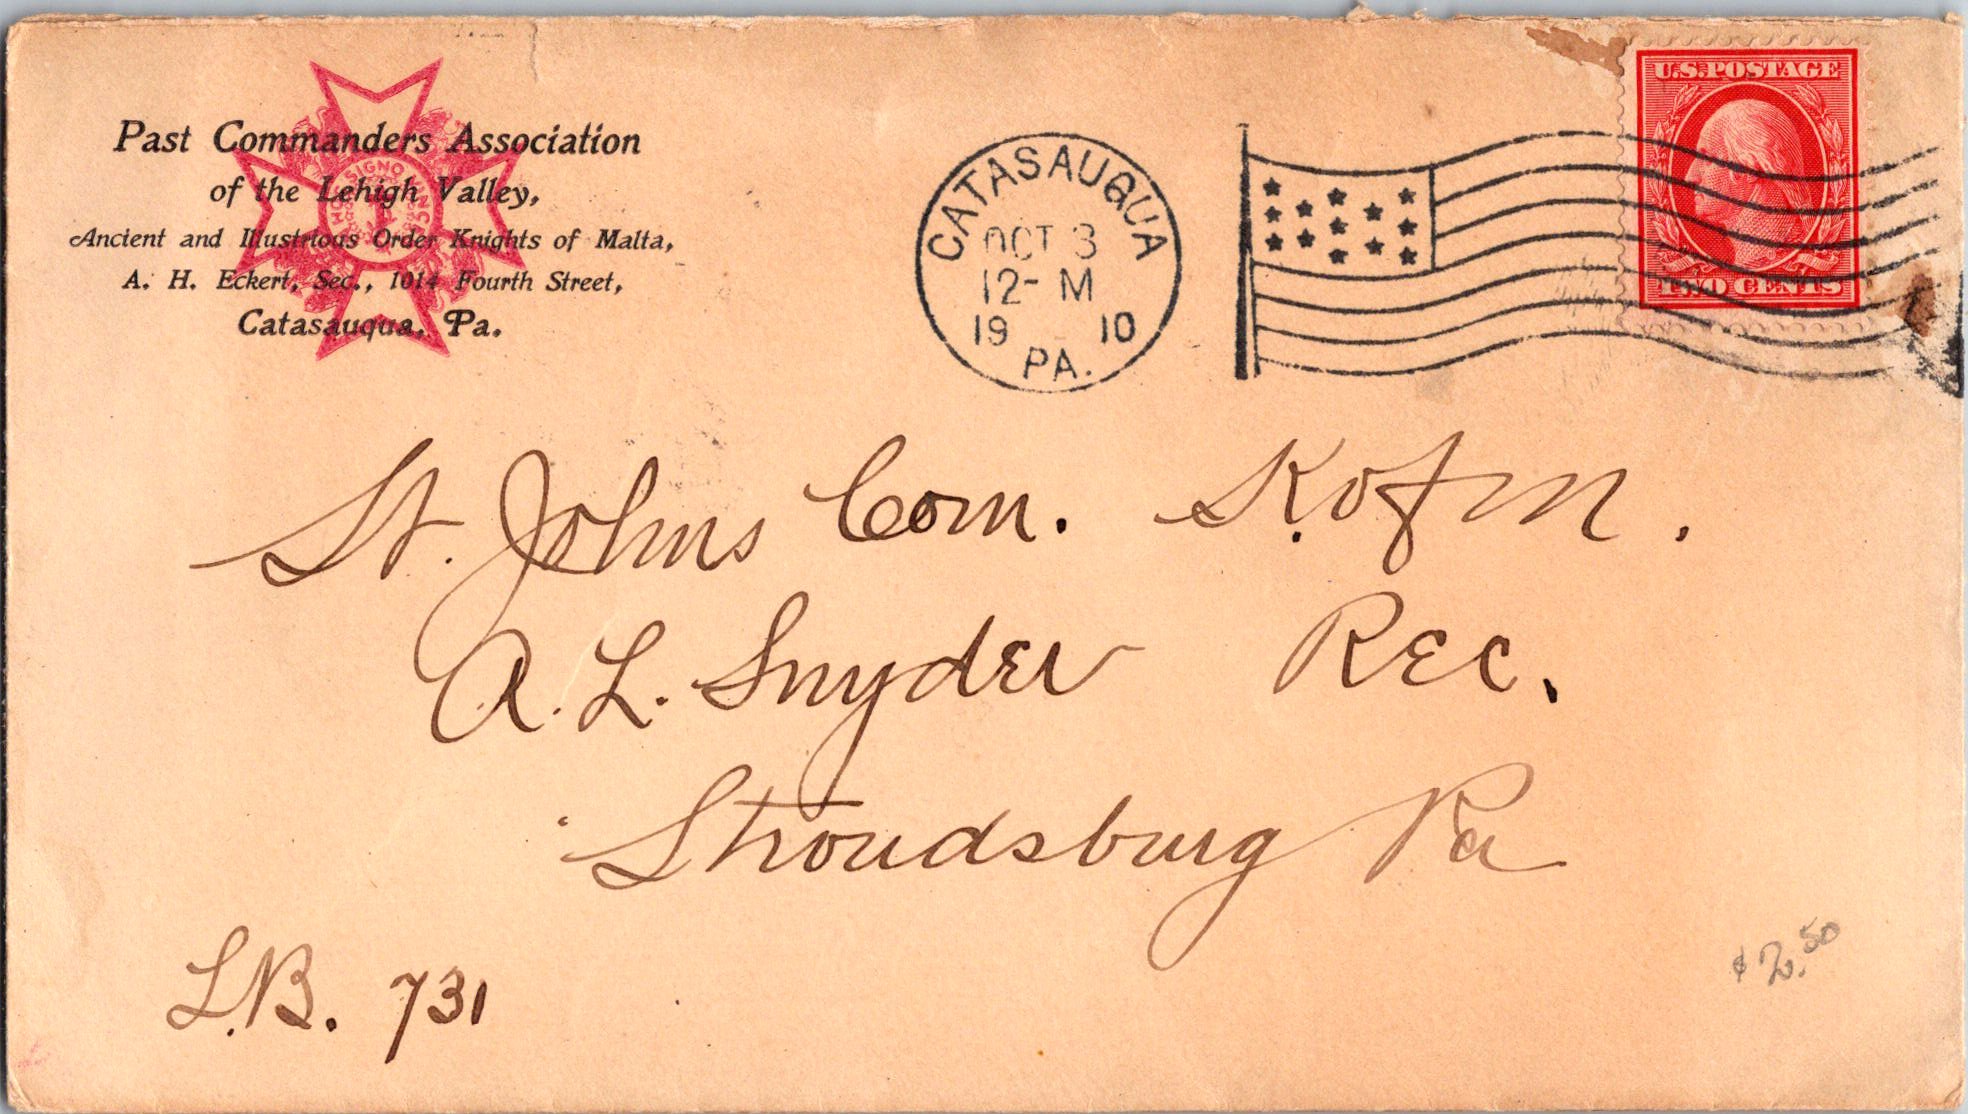 Past Commanders Association
of the Lehigh Valley,
Ancient and Illustrious Order Knights of Malta,
A. H. Eckert, Sec., 1014 Fourth Street,
Catasauqua, Pa.
HOC SIGNO VINCES
CATASAUQUA
OCT 3
12-M
19 10
PA.
U.S. POSTAGE
TWO CENTS
St. Johns Com. K. of M.
A. L. Snyder Rec.
Stroudsburg Pa
L.B. 731
$2.50